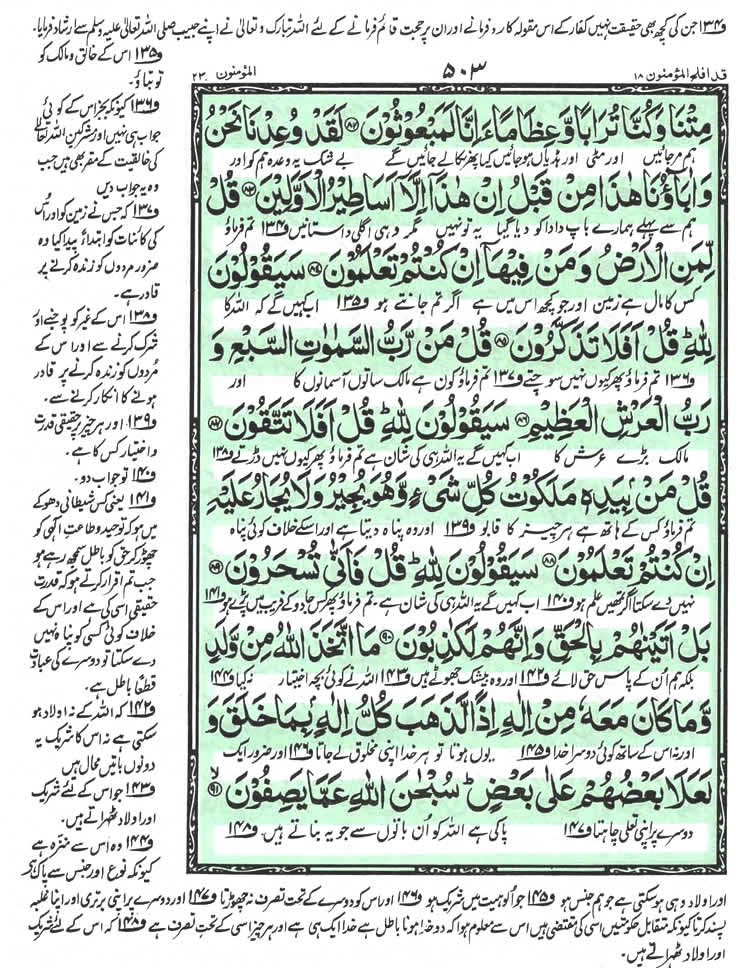 ف۱۳۴ جن کی کچھ بھی حقیقت نہیں کفار کے اس مقولہ کا رد فرمانے اور ان پر حجت قائم فرمانے کے لئے اللہ تبارک و تعالیٰ نے اپنے حبیب صلی اللہ تعالیٰ علیہ وسلم سے ارشاد فرمایا۔
قد افلح المؤمنون ۱۸
۵۰۳
المؤمنون ۲۳
مِتْنَا وَكُنَّا تُرَابًا وَّعِظَامًا ءَاِنَّا لَمَبْعُوْثُوْنَ ﴿۸۲﴾ لَقَدْ وُعِدْنَا نَحْنُ
ہم مر جائیں اور مٹی اور ہڈیاں ہو جائیں کیا پھر نکالے جائیں گے بے شک یہ وعدہ ہم کو اور
وَاٰبَآؤُنَا هٰذَا مِنْ قَبْلُ اِنْ هٰذَآ اِلَّآ اَسَاطِيْرُ الْاَوَّلِيْنَ ﴿۸۳﴾ قُلْ
ہم سے پہلے ہمارے باپ دادا کو دیا گیا یہ تو نہیں مگر وہی اگلی داستانیں ف۱۳۴ تم فرماؤ
لِّمَنِ الْاَرْضُ وَمَنْ فِيْهَآ اِنْ كُنْتُمْ تَعْلَمُوْنَ ﴿۸۴﴾ سَيَقُوْلُوْنَ
کس کا مال ہے زمین اور جو کچھ اس میں ہے اگر تم جانتے ہو ف۱۳۵ اب کہیں گے کہ اللہ کا
لِلّٰهِ ؕ قُلْ اَفَلَا تَذَكَّرُوْنَ ﴿۸۵﴾ قُلْ مَنْ رَّبُّ السَّمٰوٰتِ السَّبْعِ وَ
ف۱۳۶ تم فرماؤ پھر کیوں نہیں سوچتے ف۱۳۷ تم فرماؤ کون ہے مالک ساتوں آسمانوں کا اور
رَبُّ الْعَرْشِ الْعَظِيْمِ ﴿۸۶﴾ سَيَقُوْلُوْنَ لِلّٰهِ ؕ قُلْ اَفَلَا تَتَّقُوْنَ ﴿۸۷﴾
مالک بڑے عرش کا اب کہیں گے یہ اللہ ہی کی شان ہے تم فرماؤ پھر کیوں نہیں ڈرتے ف۱۳۸
قُلْ مَنْۢ بِيَدِهٖ مَلَكُوْتُ كُلِّ شَيْءٍ وَّهُوَ يُجِيْرُ وَلَا يُجَارُ عَلَيْهِ
تم فرماؤ کس کے ہاتھ ہے ہر چیز کا قابو ف۱۳۹ اور وہ پناہ دیتا ہے اور اسکے خلاف کوئی پناہ
اِنْ كُنْتُمْ تَعْلَمُوْنَ ﴿۸۸﴾ سَيَقُوْلُوْنَ لِلّٰهِ ؕ قُلْ فَاَنّٰى تُسْحَرُوْنَ ﴿۸۹﴾
نہیں دے سکتا اگر تمھیں علم ہو ف۱۴۰ اب کہیں گے یہ اللہ ہی کی شان ہے۔ تم فرماؤ پھر کس جادو کے فریب میں پڑے ہو ف۱۴۱
بَلْ اَتَيْنٰهُمْ بِالْحَقِّ وَاِنَّهُمْ لَكٰذِبُوْنَ ﴿۹۰﴾ مَا اتَّخَذَ اللّٰهُ مِنْ وَّلَدٍ
بلکہ ہم اُن کے پاس حق لائے ف۱۴۲ اور وہ بیشک جھوٹے ہیں ف۱۴۳ اللہ نے کوئی بچہ اختیار نہ کیا ف۱۴۴
وَّمَا كَانَ مَعَهٗ مِنْ اِلٰهٍ اِذًا لَّذَهَبَ كُلُّ اِلٰهٍۢ بِمَا خَلَقَ وَ
اور نہ اس کے ساتھ کوئی دوسرا خدا ف۱۴۵ یوں ہوتا تو ہر خدا اپنی مخلوق لے جاتا ف۱۴۶ اور ضرور ایک
لَعَلَا بَعْضُهُمْ عَلٰى بَعْضٍ ؕ سُبْحٰنَ اللّٰهِ عَمَّا يَصِفُوْنَ ﴿۹۱﴾ ۙ
دوسرے پر اپنی تعلّی چاہتا ف۱۴۷ پاکی ہے اللہ کو اُن باتوں سے جو یہ بناتے ہیں۔ ف۱۴۸
ف۱۳۵ اس کے خالق و مالک کو
تو بتاؤ۔
ف۱۳۶ کیونکہ بجز اس کے کوئی
جواب ہی نہیں اور مشرکین اللہ تعالیٰ
کی خالقیت کے مقر بھی ہیں جب
وہ یہ جواب دیں
ف۱۳۷ کہ جس نے زمین کو اور اس
کی کائنات کو ابتداءً پیدا کیا وہ
ضرور مردوں کو زندہ کرنے پر
قادر ہے۔
ف۱۳۸ اس کے غیر کو پوجنے اور
شرک کرنے سے اور اس کے
مُردوں کو زندہ کرنے پر قادر
ہونے کا انکار کرنے سے۔
ف۱۳۹ اور ہر چیز پر حقیقی قدرت
و اختیار کس کا ہے۔
ف۱۴۰ تو جواب دو۔
ف۱۴۱ یعنی کس شیطانی دھوکے
میں ہو کہ توحید و طاعتِ الٰہی کو
چھوڑ کر حق کو باطل سمجھ رہے ہو
جب تم اقرار کرتے ہو کہ قدرت
حقیقی اسی کی ہے اور اس کے
خلاف کوئی کسی کو پناہ نہیں
دے سکتا تو دوسرے کی عبادت
قطعاً باطل ہے۔
ف۱۴۲ کہ اللہ کے نہ اولاد ہو
سکتی ہے نہ اس کا شریک یہ
دونوں باتیں محال ہیں
ف۱۴۳ جو اس کے لئے شریک
اور اولاد ٹھہراتے ہیں۔
ف۱۴۴ وہ اس سے منزّہ ہے
کیونکہ نوع اور جنس سے پاک ہے
اور اولاد وہی ہو سکتی ہے جو ہم جنس ہو ف۱۴۵ جو اُلوہیت میں شریک ہو ف۱۴۶ اور اس کو دوسرے کے تحت تصرف نہ چھوڑتا ف۱۴۷ اور دوسرے پر اپنی برتری اور اپنا غلبہ
پسند کرتا کیونکہ متقابل حکومتیں اسی کی مقتضی ہیں اس سے معلوم ہوا کہ دو خدا ہونا باطل ہے خدا ایک ہی ہے اور ہر چیز اسی کے تحت تصرف ہے ف۱۴۸ کہ اس کے لئے شریک
اور اولاد ٹھہراتے ہیں۔